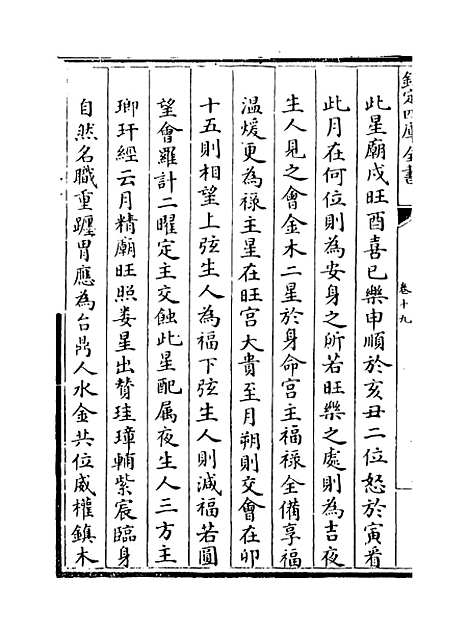 欽定四庫全書
卷十九
此星廟戌旺酉喜巳樂申順於亥丑二位怒於寅看
此月在何位則為安身之所若旺樂之處則為吉夜
生人見之會金木二星於身命宮主福祿全備享福
溫煖更為祿主星在旺宮大貴至月朔則交會在卯
十五則相望上弦生人為福下弦生人則減福若圓
望會羅計二曜定主交蝕此星配属夜生人三方主
瑯玕經云月精廟旺照婁星出贊珪璋輔紫宸臨身
自然名職重躔胃應為台鼎人水金共位威權鎮木